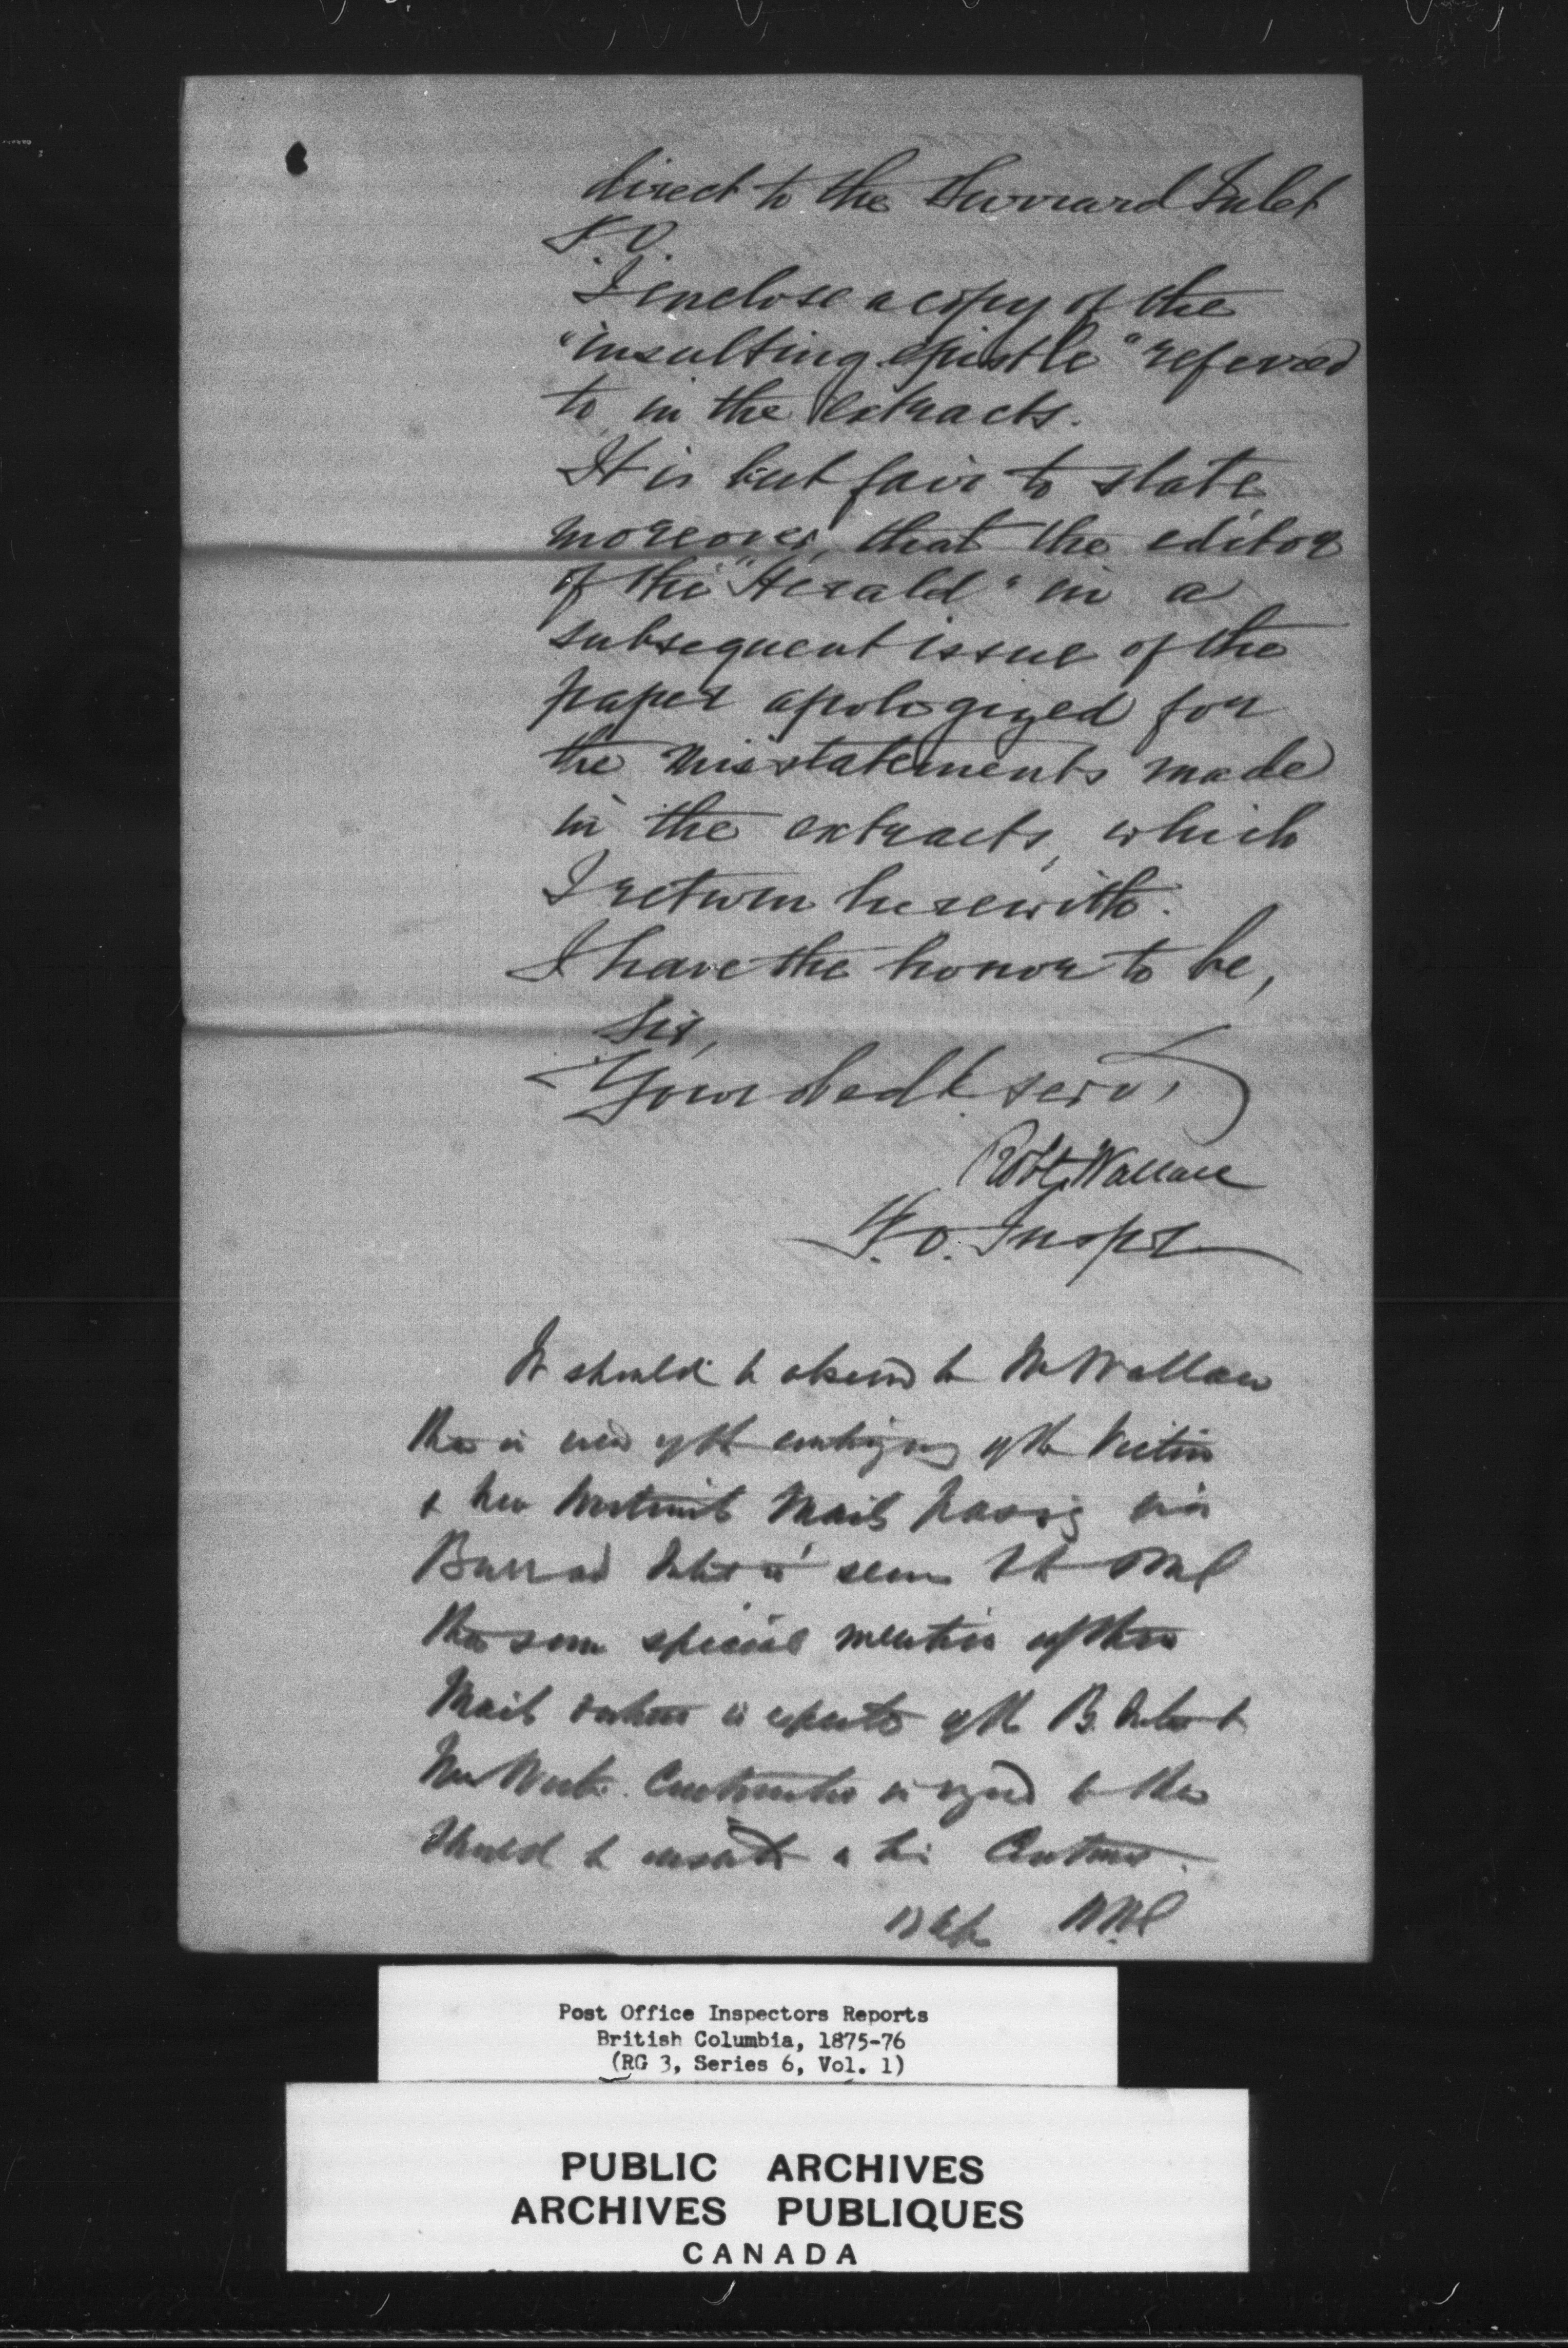 direct to the Burrard Inlet
P.O.
I enclose a copy of the
"insulting epistle" referred
to in the extracts.
It is but fair to state
moreover, that the editor
of the "Herald" in a
subsequent issue of the
paper apologized for
the misstatements made
in the extracts, which
I return herewith.
I have the honor to be,
Sir,
Your obedt servt
Robt Wallace
P.O. Inspr
It should be observed to Mr Wallace
that in
& New Westminster Mails passing via
Burrard Inlet it seems to the PMG
that some special mention of these
Mails
New West.
should be
Post Office Inspectors Reports
British Columbia, 1875-76
(RG 3, Series 6, Vol. 1)
PUBLIC ARCHIVES
ARCHIVES PUBLIQUES
CANADA